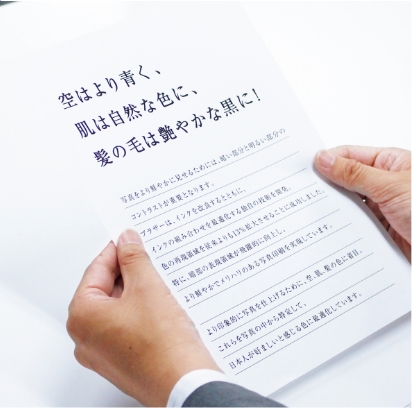 空はより青く、
肌は自然な色に、
髪の毛は艶やかな黒に！
写真をより鮮やかに見せるためには、暗い部分と明るい部分の
コントラストが重要となります。
ブラザーは、インクを改良するとともに、
インクの組み合わせを最適化する独自の技術を開発。
色の再現領域を従来よりも13%拡大させることに成功しました。
特に、暗部の表現領域が飛躍的に向上し、
より鮮やかでメリハリのある写真印刷を実現しています。
より印象的に写真を仕上げるために、空、肌、髪の色に着目。
これらを写真の中から特定して、
日本人が好ましいと感じる色に最適化しています。